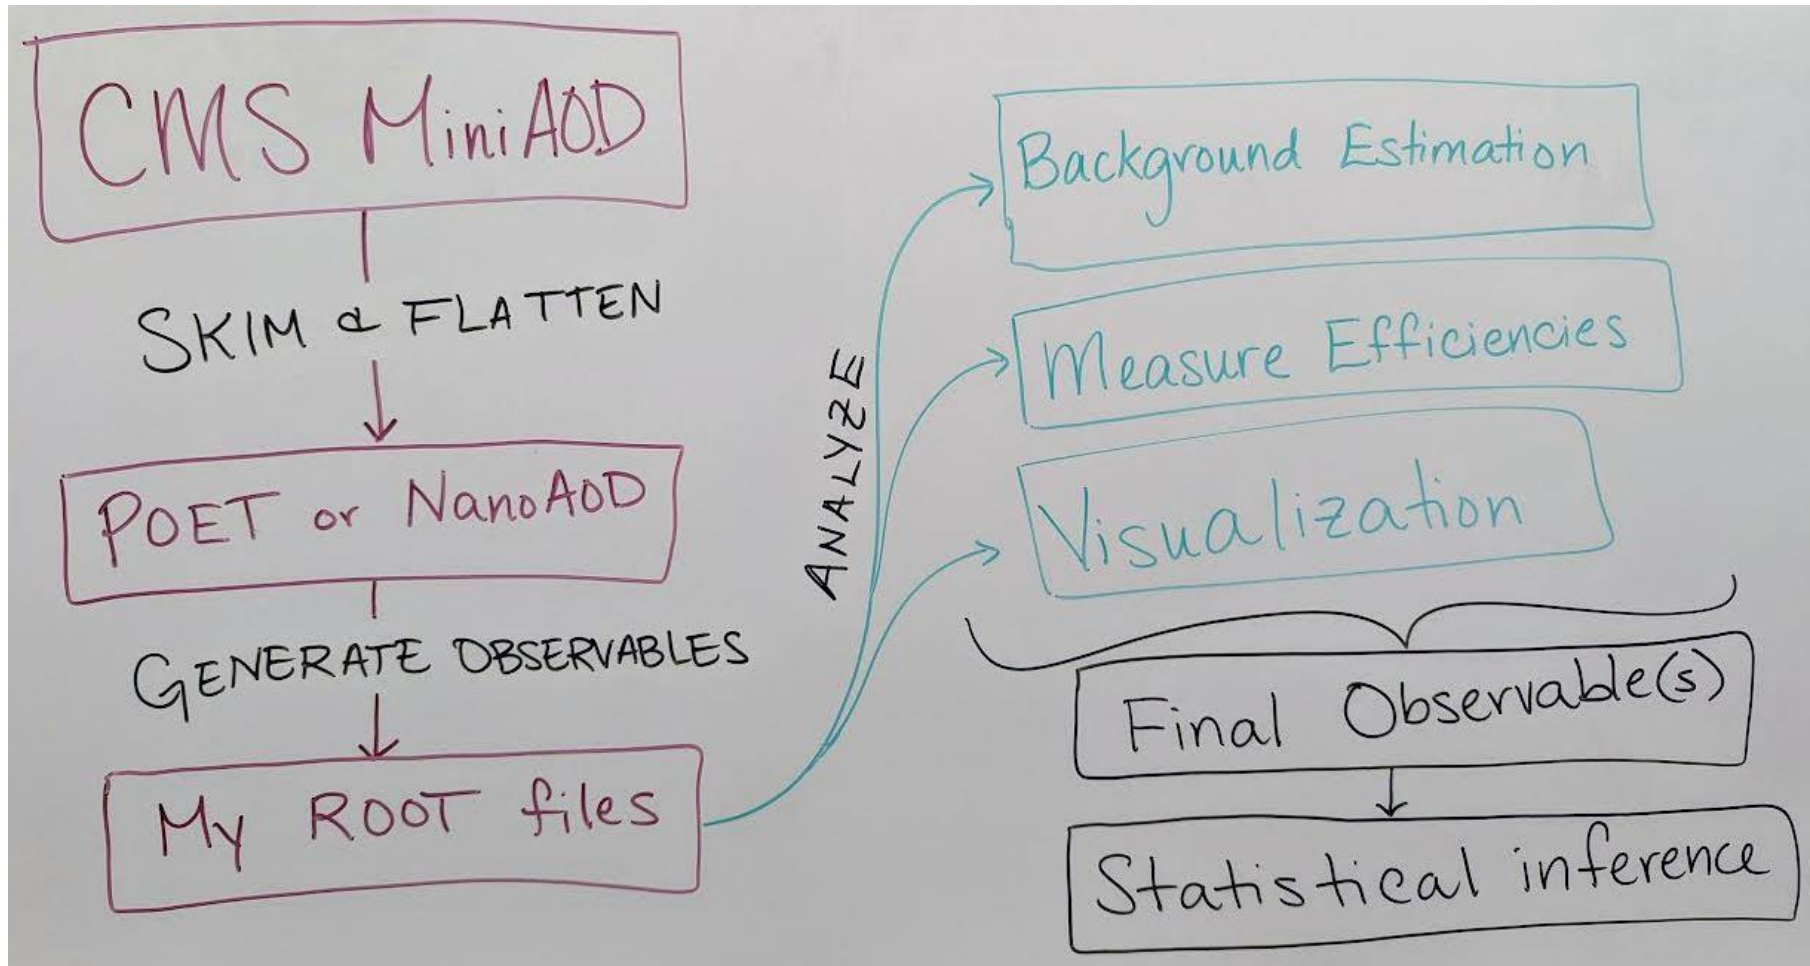 CMS MiniAOD
SKIM & FLATTEN
POET or NanoAOD
GENERATE OBSERVABLES
My ROOT files
ANALYZE
Background Estimation
Measure Efficiencies
Visualization
Final Observable(s)
Statistical inference